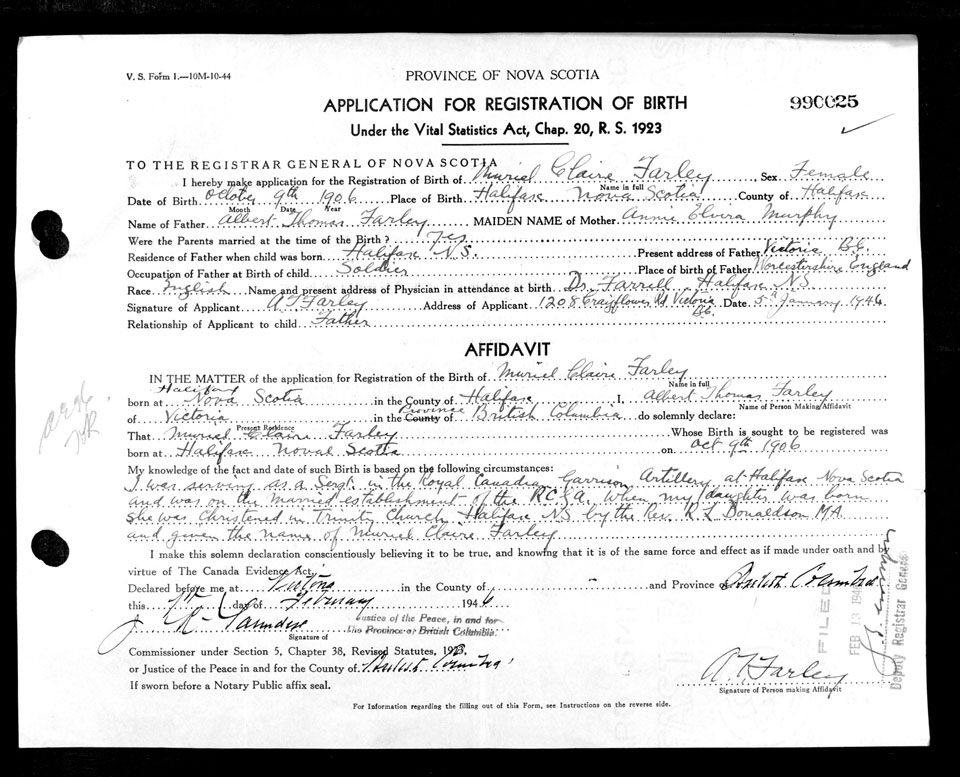 V. S. Form 1.—10M-10-44
PROVINCE OF NOVA SCOTIA
APPLICATION FOR REGISTRATION OF BIRTH
990025
Under the Vital Statistics Act, Chap. 20, R. S. 1923
TO THE REGISTRAR GENERAL OF NOVA SCOTIA
I hereby make application for the Registration of Birth of Muriel Claire Farley Sex Female
Name in full
Date of Birth October 9th 1906 Place of Birth Halifax Nova Scotia County of Halifax
Month Date Year
Name of Father Albert Thomas Farley MAIDEN NAME of Mother Annie Elvira Murphy
Were the Parents married at the time of the Birth? Yes
Residence of Father when child was born Halifax N.S. Present address of Father Victoria B.C.
Occupation of Father at Birth of child Soldier Place of birth of Father Worcestershire England
Race English Name and present address of Physician in attendance at birth Dr. Farrell Halifax N.S.
Signature of Applicant A T Farley Address of Applicant 1208 Craigflower Rd Victoria B.C. Date 5th January 1946
Relationship of Applicant to child Father
AFFIDAVIT
IN THE MATTER of the application for Registration of the Birth of Muriel Claire Farley
Name in full
born at Halifax Nova Scotia in the County of Halifax I, Albert Thomas Farley
Name of Person Making Affidavit
of Victoria in the County Province of British Columbia do solemnly declare:
Present Residence
That Muriel Claire Farley Whose Birth is sought to be registered was
born at Halifax Nova Scotia on Oct 9th 1906
My knowledge of the fact and date of such Birth is based on the following circumstances:
I was serving as a Sergt. in the Royal Canadian Garrison Artillery at Halifax Nova Scotia
and was on the married establishment of the R.C.G.A. when my daughter was born
She was Christened in Trinity Church Halifax NS by the Rev. R L Donaldson MA
and given the name of Muriel Claire Farley
I make this solemn declaration conscientiously believing it to be true, and knowing that it is of the same force and effect as if made under oath and by
virtue of The Canada Evidence Act.
Declared before me at Victoria in the County of " and Province of British Columbia
this day of February 1946
Justice of the Peace, in and for
the Province of British Columbia.
Signature of
Commissioner under Section 5, Chapter 38, Revised Statutes, 1923.
or Justice of the Peace in and for the County of British Columbia
If sworn before a Notary Public affix seal.
A T Farley
Signature of Person making Affidavit
FILED
FEB 13 1946
Deputy Registrar General
For Information regarding the filling out of this Form, see Instructions on the reverse side.